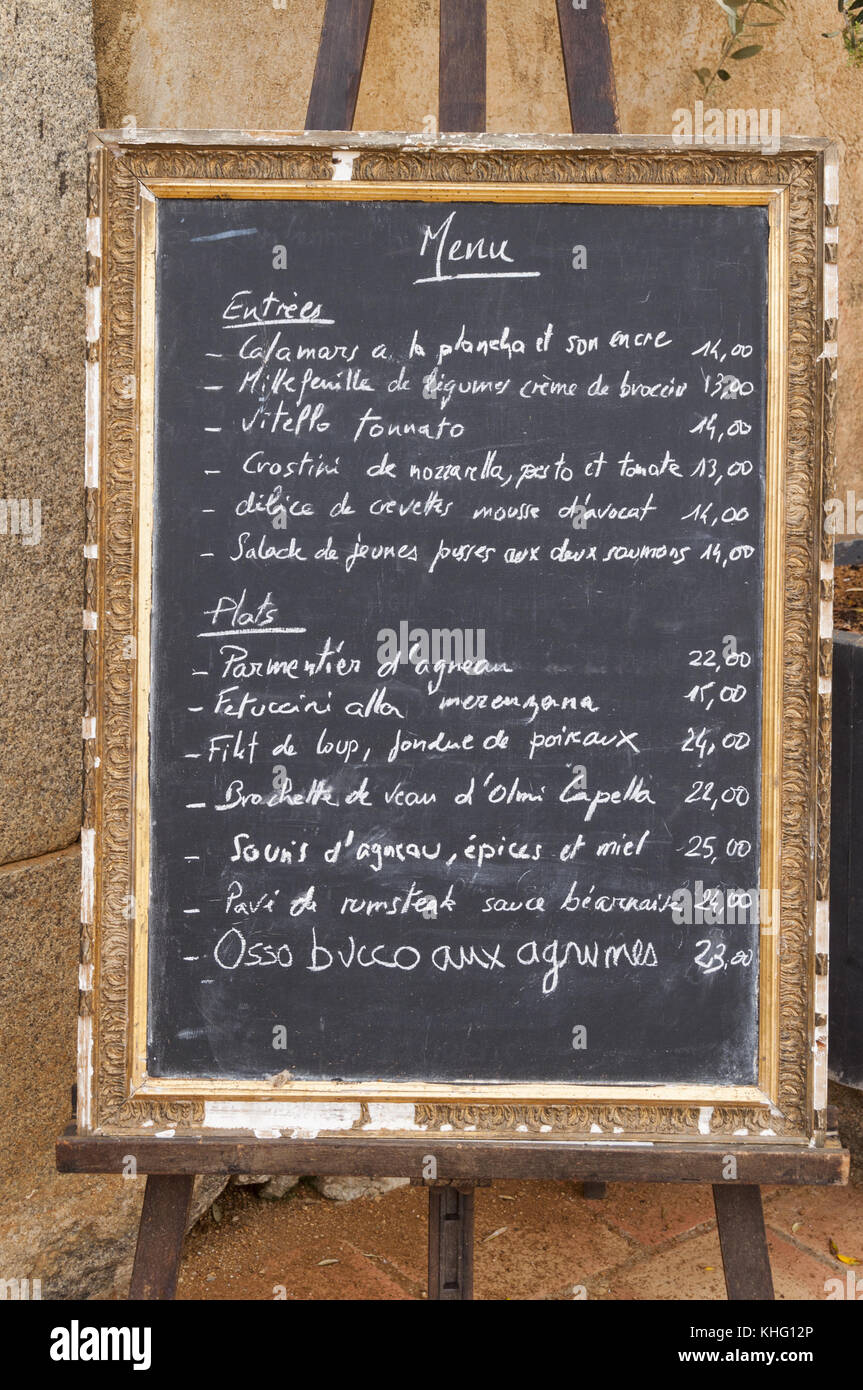 Menu
Entrées
- Calamars a la plancha et son encre 14,00
- Millefeuille de légumes crème de brocciu 13,00
- Vitello tonnato 14,00
- Crostini de mozzarella, pesto et tomate 13,00
- délice de crevettes mousse d'avocat 14,00
- Salade de jeunes pousses aux deux saumons 14,00
Plats
- Parmentier d'agneau 22,00
- Fetuccini alla merenzana 15,00
- Filet de loup, fondue de poireaux 24,00
- Brochette de veau d'Olmi Capella 22,00
- Souris d'agneau, épices et miel 25,00
- Pavé de rumsteak sauce béarnaise 24,00
- Osso bucco aux agrumes 23,00
alamy
Image ID: KHG12P
www.alamy.com